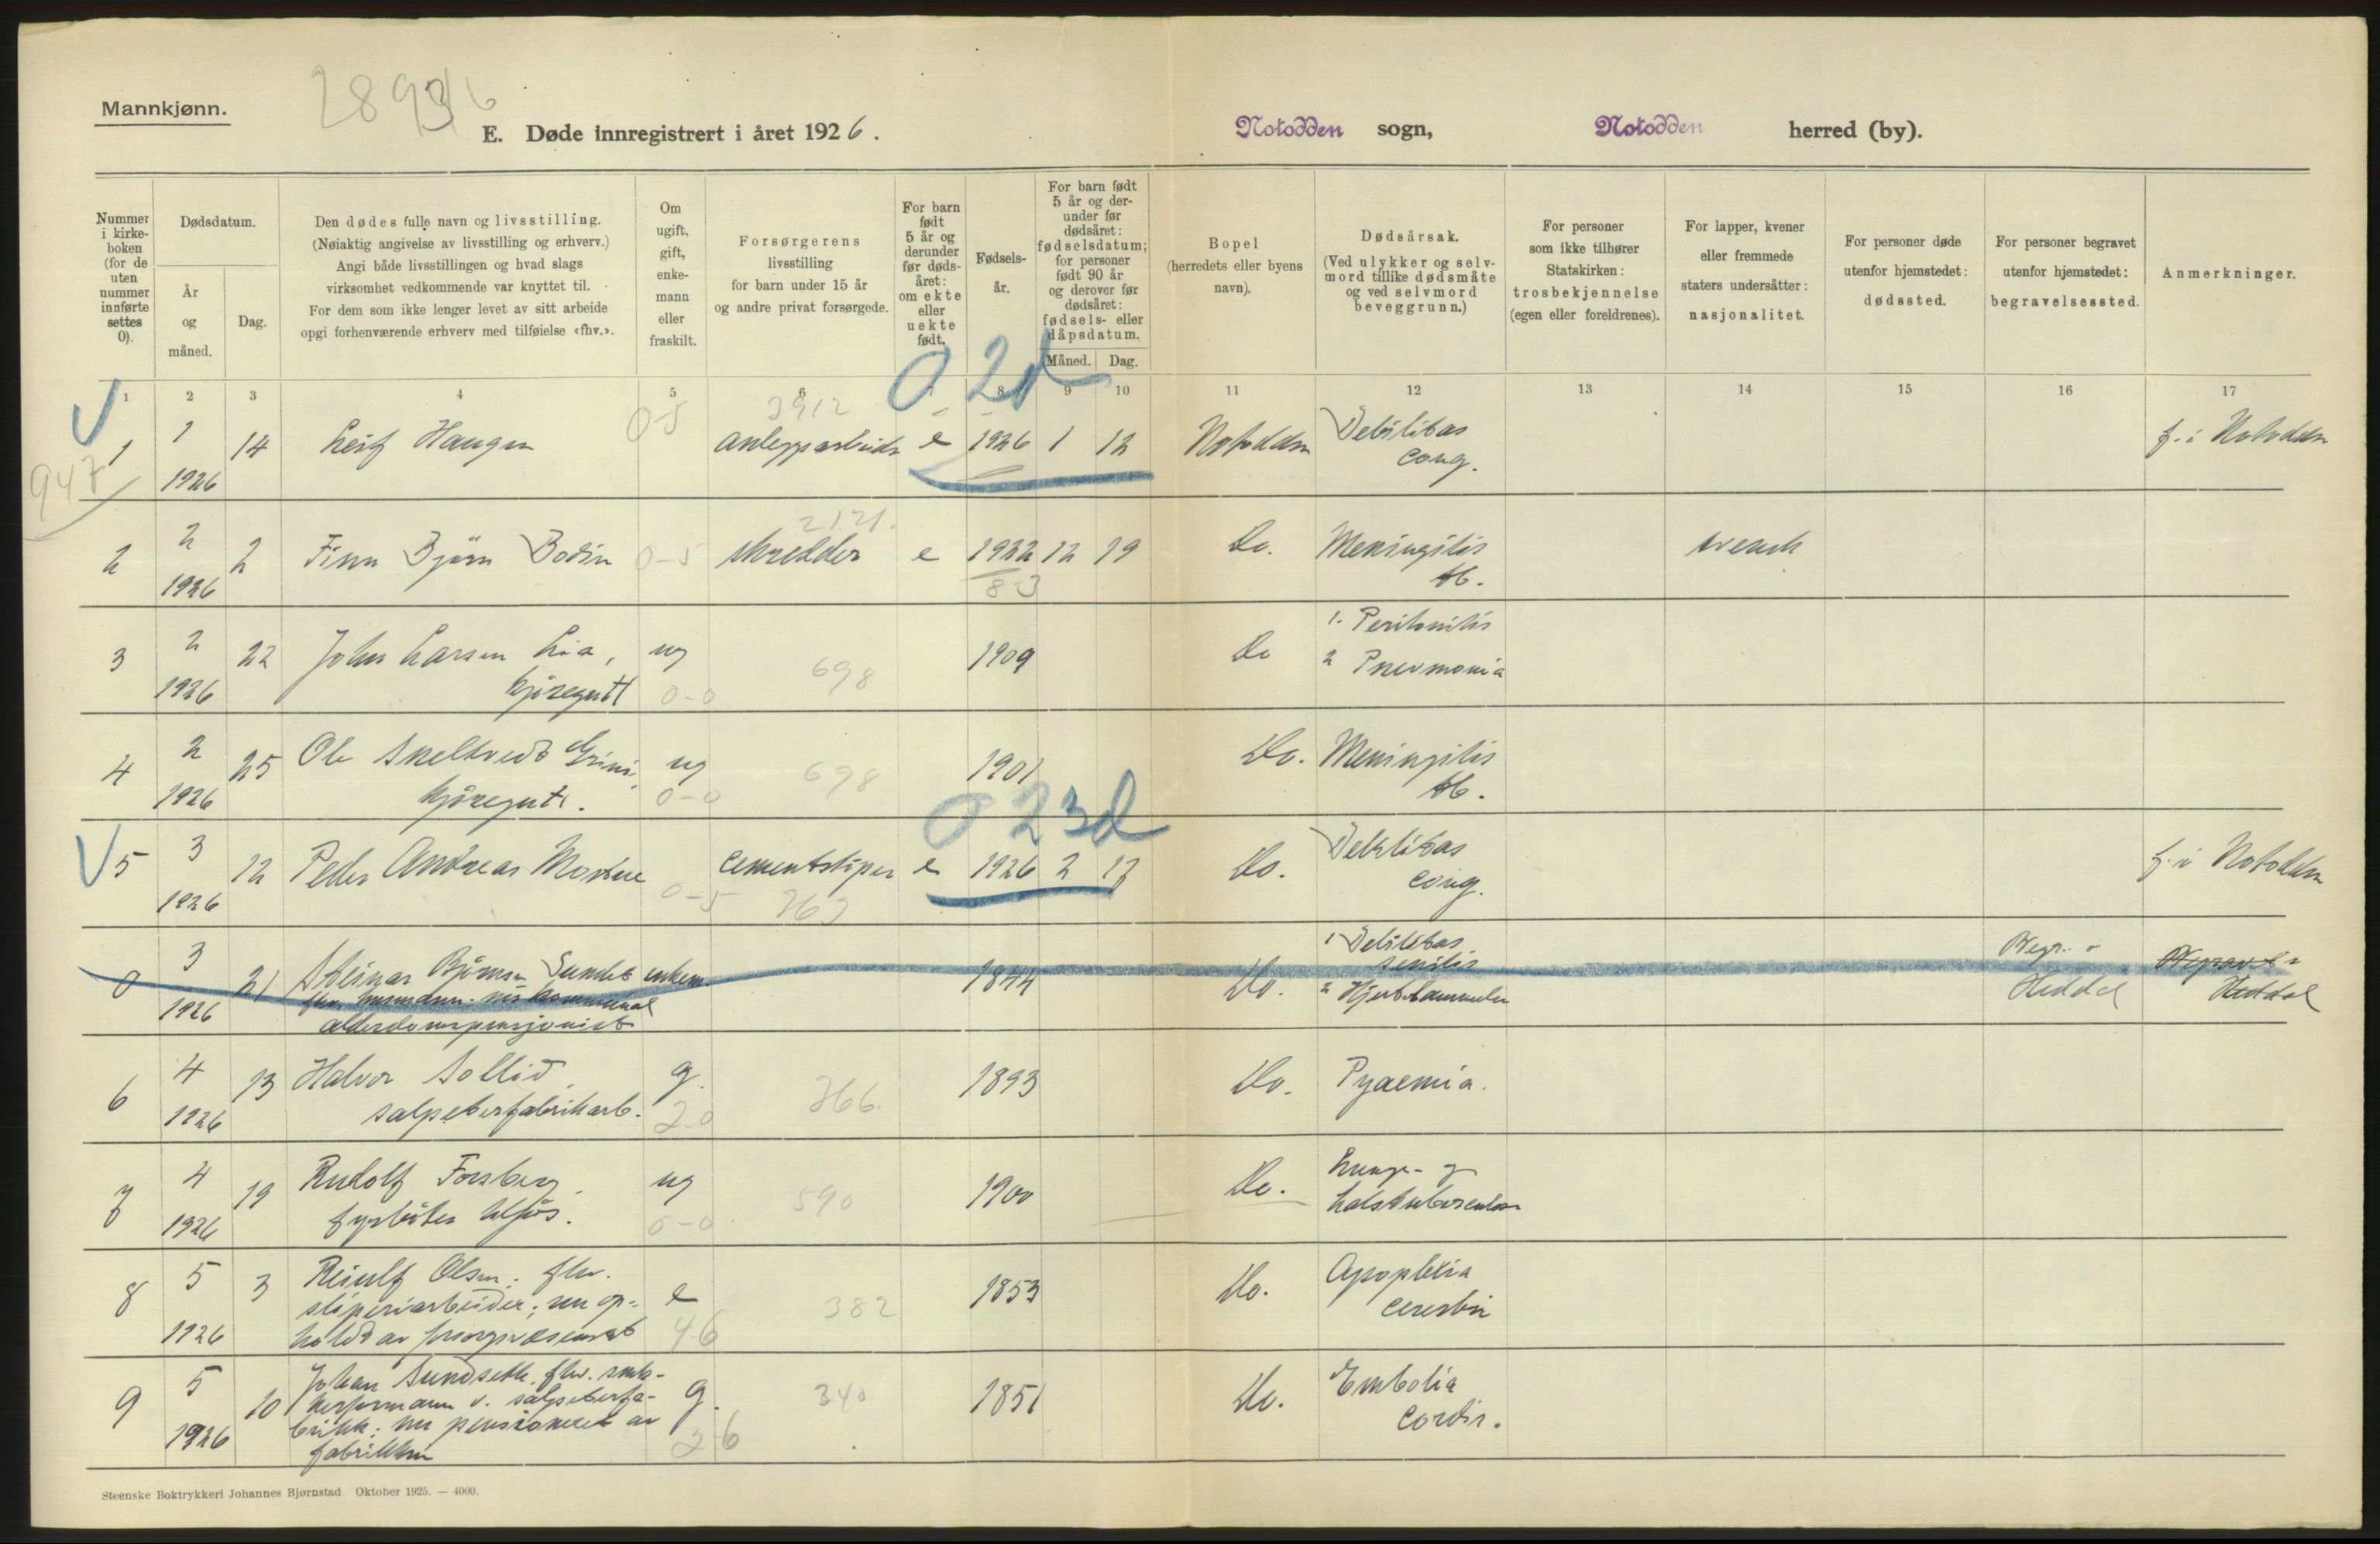 Mannkjønn.
E. Døde innregistrert i året 1926.
Notodden sogn, Notodden herred (by).
Nummer i kirke-boken (for de uten nummer innførte settes 0).
Dødsdatum.
År og måned.
Dag.
Den dødes fulle navn og livsstilling.
(Nøiaktig angivelse av livsstilling og erhverv.)
Angi både livsstillingen og hvad slags
virksomhet vedkommende var knyttet til.
For dem som ikke lenger levet av sitt arbeide
opgi forhenværende erhverv med tilføielse «fhv.».
Om ugift, gift, enke-mann eller fraskilt.
Forsørgerens
livsstilling
for barn under 15 år
og andre privat forsørgede.
For barn født 5 år og derunder før døds-året: om ekte eller uekte født.
Fødsels-år.
For barn født 5 år og der-under før dødsåret: fødselsdatum; for personer født 90 år og derover før dødsåret: fødsels- eller dåpsdatum.
Måned. Dag.
Bopel
(herredets eller byens
navn).
Dødsårsak.
(Ved ulykker og selv-
mord tillike dødsmåte
og ved selvmord
beveggrunn.)
For personer
som ikke tilhører
Statskirken:
trosbekjennelse
(egen eller foreldrenes).
For lapper, kvener
eller fremmede
staters undersåtter:
nasjonalitet.
For personer døde
utenfor hjemstedet:
dødssted.
For personer begravet
utenfor hjemstedet:
begravelsessted.
Anmerkninger.
1 2 3 4 5 6 7 8 9 10 11 12 13 14 15 16 17
0 2d
947
1 1 1926 14 Leif Haugen 0-5 3912 anleggsarbeider e 1926 1 12 Notodden Debilitas cong. f. i Notodden
2 2 1926 2 Finn Bjørn Bodin 0-5 2121. skredder e 1922 12 19 Do. Meningitis tb. svensk
83
3 2 1926 22 John Larsen Lia, kjøregutt ug 0-0 698 1909 Do 1. Peritonitis 2 Pnevmonia
4 2 1926 25 Ole Skeltved Grini, kjøregutt. ug 0-0 698 1901 Do. Meningitis tb.
0 23d
5 3 1926 12 Peder Andreas 0-5 cementstøper 263 e 1926 2 17 Do. Debilitas cong. f. i Notodden
0 3 1926 21 Steinar Bjørnsen enkem. fhv. husmann. nu kommunal alderdomspensjonist 1844 Do. 1 Debilitas senilis 2 Hjertelammelse Begr. i Heddal Begravet i Heddal
6 4 1926 13 Halvor Sollid, salpeterfabrikarb. g. 2-0 366 1893 Do. Pyaemia.
7 4 1926 19 Rudolf Forsberg, fyrbøter ug 0-0 590 1900 Do. Lunge- og halstuberculose
8 5 1926 3 Reiulf Olsen; fhv. sliperiarbeider; nu op-holdt av forsorgsvæsenet e 4-6 382 1853 Do. Apoplexia cerebri
9 5 1926 10 Johan Sundseth, fhv. smelterformann v. salpeterfa-brikk; nu pensioneret av fabrikken g. 2-6 340 1851 Do. Embolia cordis.
Steenske Boktrykkeri Johannes Bjørnstad. Oktober 1925. — 4000.